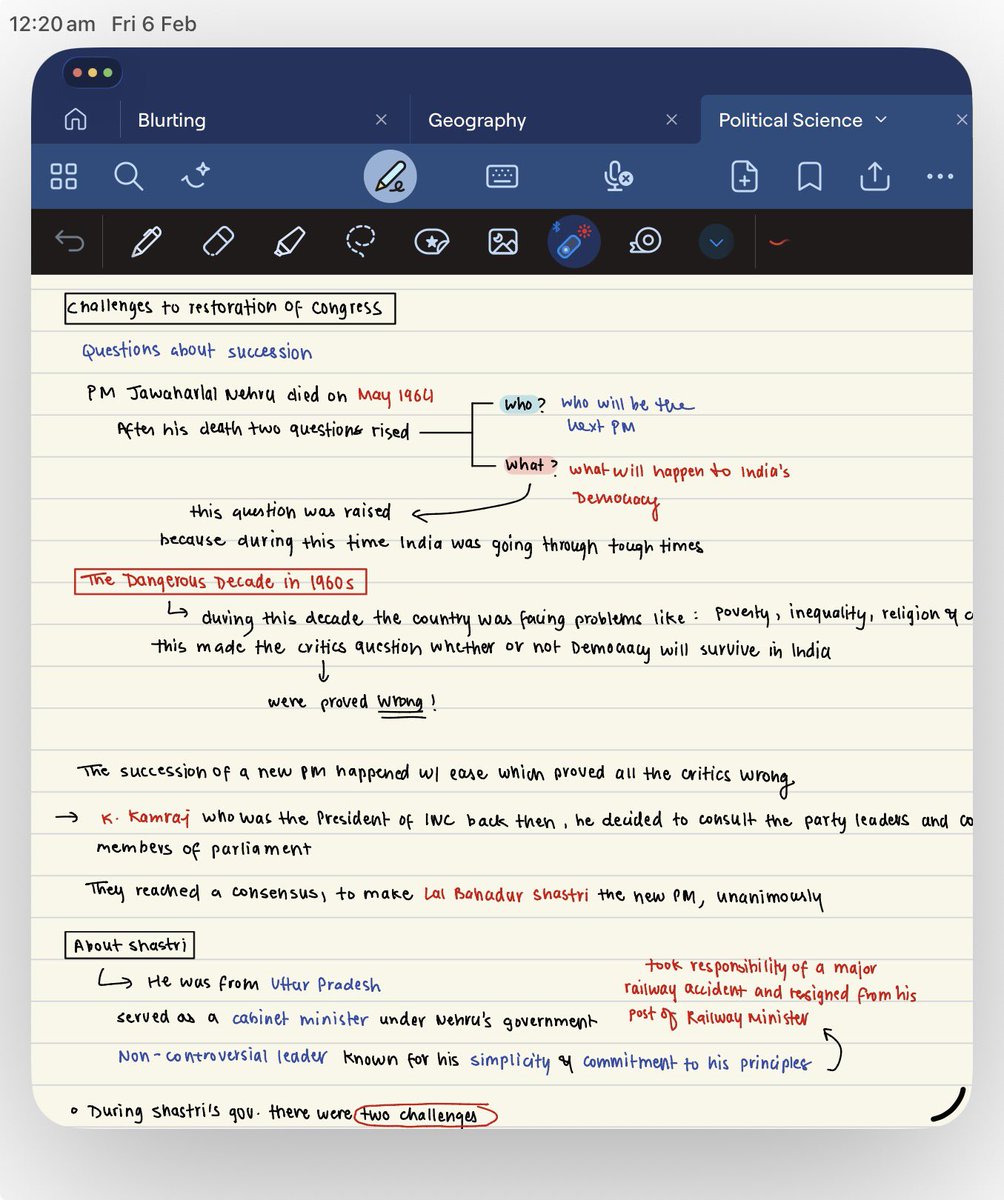 12:20 am Fri 6 Feb
Blurting
Geography
Political Science
Challenges to restoration of Congress
Questions about succession
PM Jawaharlal Nehru died on May 1964
After his death two questions rised
Who? who will be the
next PM
What? what will happen to India's
Democracy
this question was raised
because during this time India was going through tough times
The Dangerous Decade in 1960s
during this decade the country was facing problems like : poverty, inequality, religion &
this made the critics question whether or not Democracy will survive in India
were proved wrong!
The succession of a new PM happened w/ ease which proved all the critics wrong
→ K. Kamraj who was the President of INC back then, he decided to consult the party leaders and
members of parliament
They reached a consensus, to make Lal Bahadur Shastri the new PM, unanimously
About Shastri
He was from Uttar Pradesh
served as a cabinet minister under Nehru's government
Non-controversial leader known for his simplicity & commitment to his principles
took responsibility of a major
railway accident and resigned from his
post of Railway Minister
• During Shastri's gov. there were two challenges